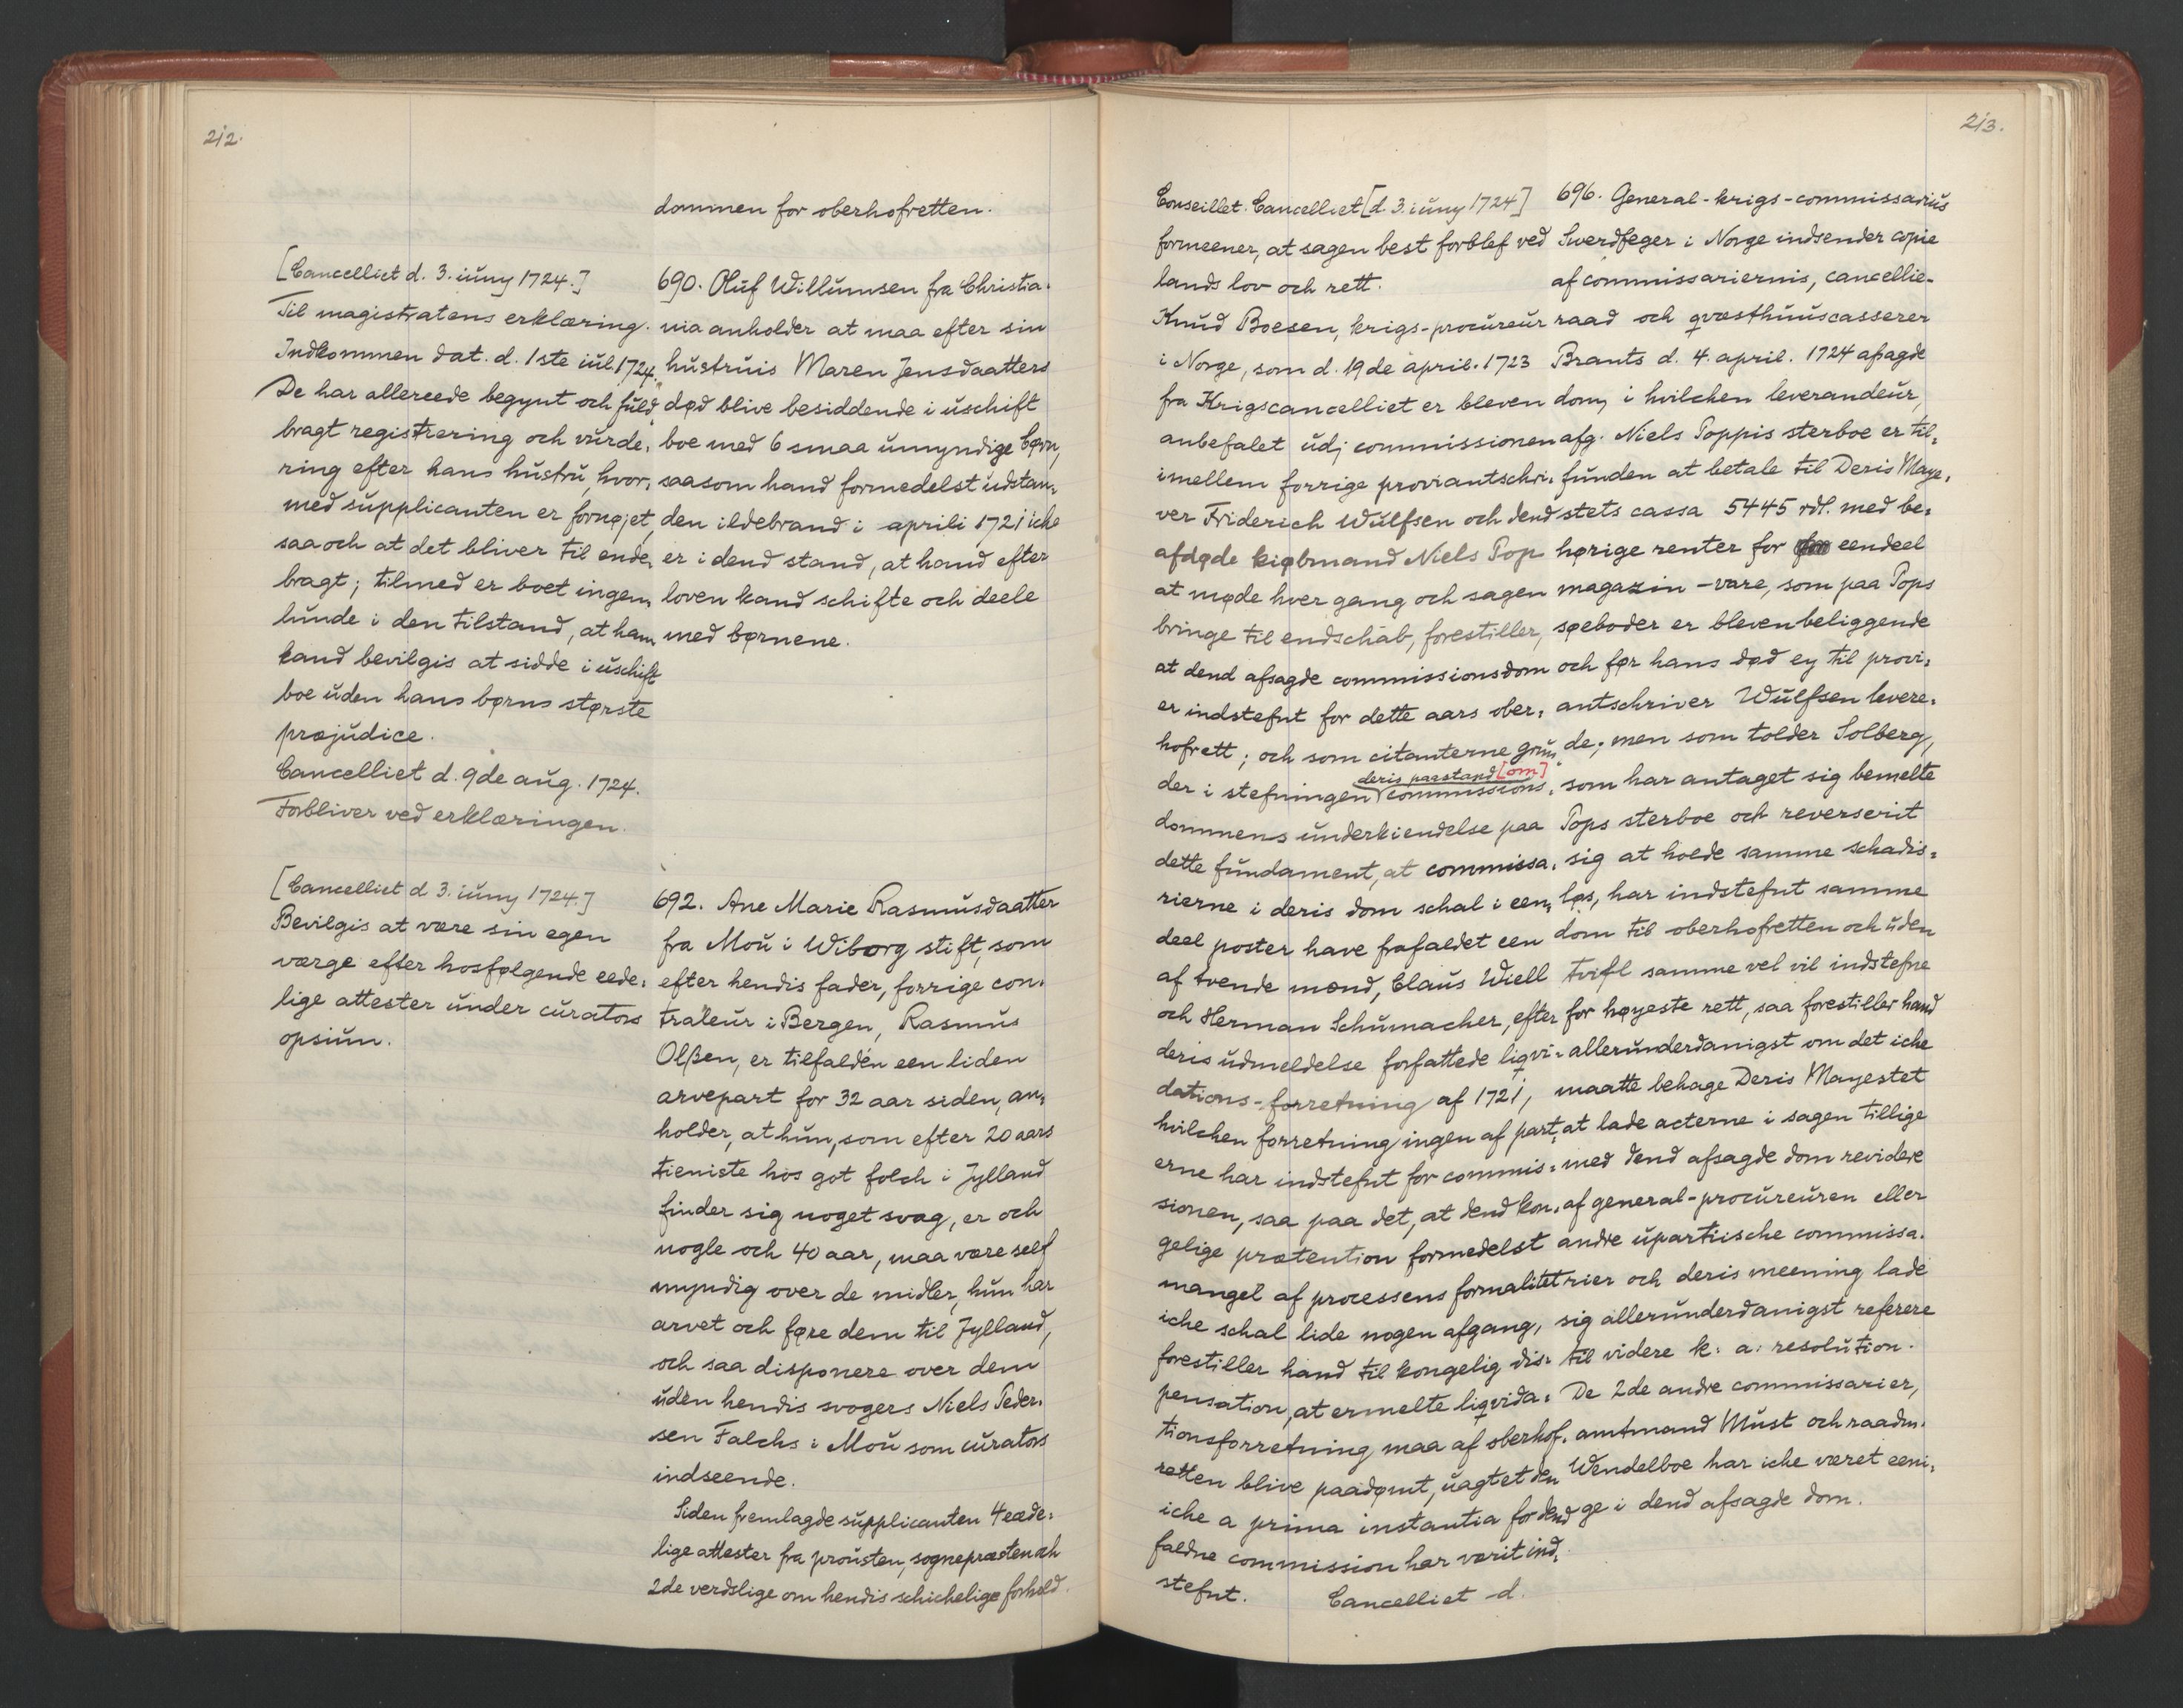 212.
dommen for oberhofretten.
[Cancelliet d. 3. iüny 1724.]
Til magistratens erklæring.
Indkommen dat. d. 1ste iül. 1724.
De har allereede begynt och füld,
bragt registrering och vürde,
ring efter hans hüstrü, hvor,
med süpplicanten er fornøjet,
saa och at det bliver til ende,
bragt; tilmed er boet ingen,
lünde i den tilstand, at ham
kand bevilgis at sidde i üschift
boe üden hans børns største
præjüdice.
Cancelliet d. 9de aüg. 1724.
Forbliver ved erklæringen.
690. Olüf Willümsen fra Christia,
nia anholder at maa efter sin
hüstrüis Maren Jensdaatters
død blive besiddende i üschift
boe med 6 smaa ümyndige børn,
saasom hand formedelst üdstan,
den ildebrand i aprili 1721 iche
er i dend stand, at hand efter
loven kand schifte och deele
med børnene.
[Cancelliet d 3. iüny 1724.]
Bevilgis at være sin egen
værge efter hosfølgende eede,
lige attester ünder cürators
opsiün.
692. Ane Marie Rasmüsdaatter
fra Moü i Wiborg stift, som
efter hendis fader, forrige con,
traleür i Bergen, Rasmüs
Olßen, er tilfalden een liden
arvepart for 32 aar siden, an,
holder, at hün, som efter 20 aars
tieniste hos got folch i Jylland
finder sig noget svag, er och
nogle och 40 aar, maa være self
myndig over de midler, hün har
arvet och føre dem til Jylland,
och saa disponere over dem
üden hendis svogers Niels Peder,
sen Falchs i Moü som cürators
indseende.
Siden fremlagde süpplicanten 4 eæde,
lige attester fra proüsten, sognepræsten och
2de verdslige om hendis schichelige forhold.
213.
Conseillet. Cancelliet [d. 3. iüny 1724]
formeener, at sagen best forblef ved
lands lov och rett.
Knüd Boesen, krigs-procüreür
i Norge, som d. 19de april. 1723
fra Krigscancelliet er bleven
anbefalet üdj commissionen
imellem forrige proviantschri,
ver Friderich Wülfsen och dend
afdøde kiøbmand Niels Pop
at møde hver gang och sagen
bringe til endschab, forestiller,
at dend afsagde commissionsdom
er indstefnt for dette aars ober,
hofrett; och som citanterne grün,
der i stefningen deris paastand [om] commissions,
dommens ünderkiendelse paa
dette fündament, at commissa,
rierne i deris dom schal i een,
deel poster have frafaldet een
af tvende mænd, Claüs Wiell
och Herman Schümacher, efter
deris üdmeldelse forfattede liqvi,
dations-forretning af 1721,
hvilchen forretning ingen af part,
erne har indstefnt for commis,
sionen, saa paa det, at dend kon,
gelige prætention formedelst
mangel af processens formalitet
iche schal lide nogen afgang,
forestiller hand til kongelig dis,
pensation, at ermelte liqvida,
tionsforretning maa af oberhof,
retten blive paadømt, üagtet den
iche a prima instantia for dend
faldne commission har værit ind,
stefnt.
Cancelliet d.
696. General-krigs-commissariüs
Swerdfeger i Norge indsender copie
af commissariernis, cancellie-
raad och qvæsthüüscasserer
Brants d. 4. april. 1724 afsagde
dom, i hvilchen leverandeür,
afg. Niels Poppis sterboe er til,
fünden at betale til Deris Maye,
stets cassa 5445 rdl. med be,
hørige renter for eendeel
magazin-vare, som paa Pops
søeboder er bleven beliggende
och før hans død ey til provi,
antschriver Wülfsen levere,
de; men som tolder Solberg,
som har antaget sig bemelte
Pops sterboe och reverserit
sig at holde samme schadis,
løs, har indstefnt samme
dom til oberhofretten och üden
tvifl samme vel vil indstefne
for høyeste rett, saa forestiller hand
alleründerdanigst om det iche
maatte behage Deris Mayestet
at lade acterne i sagen tillige
med dend afsagde dom revidere
af general-procüreüren eller
andre üpartiische commissa,
rier och deris meening lade
sig alleründerdanigst referere
til videre k: a: resolütion.
De 2de andre commissarier,
amtmand Müst och raadm.
Wendelboe har iche været eeni,
ge i dend afsagde dom.